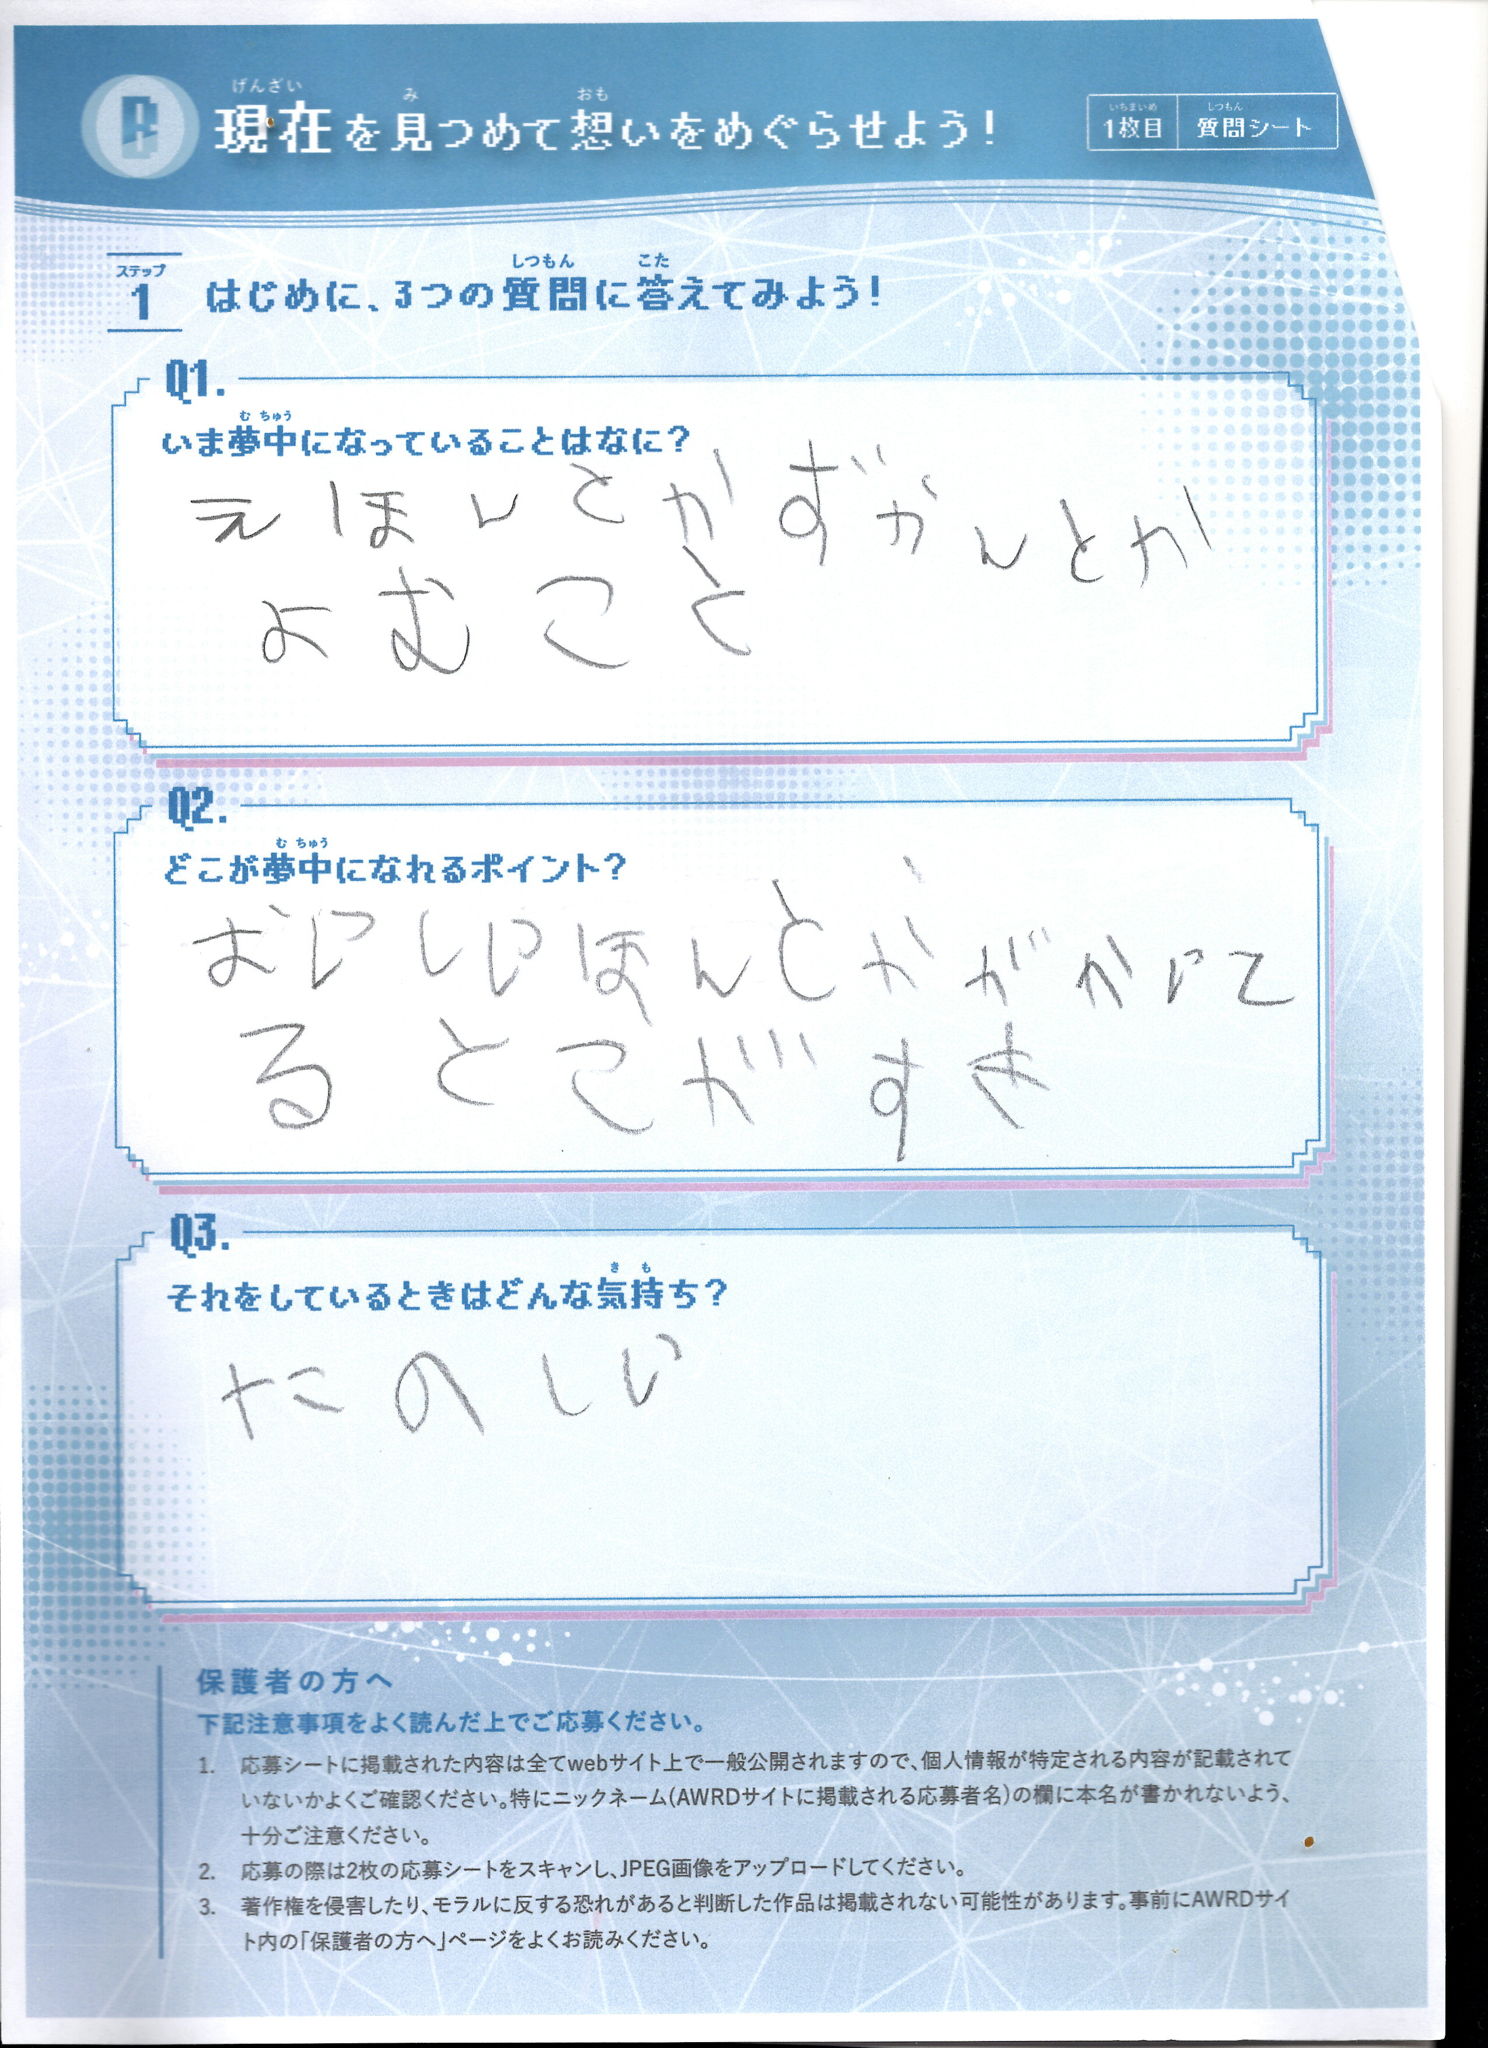 げんざい み おも
現在を見つめて想いをめぐらせよう!
いちまいめ しつもん
1枚目 質問シート
ステップ
1
しつもん こた
はじめに、3つの質問に答えてみよう!
Q1.
む ちゅう
いま夢中になっていることはなに?
えほんとかずかんとか
よむこと
Q2.
む ちゅう
どこが夢中になれるポイント?
おいしいほんとかがかいて
るとこがすき
Q3.
き も
それをしているときはどんな気持ち?
たのしい
保護者の方へ
下記注意事項をよく読んだ上でご応募ください。
1. 応募シートに掲載された内容は全てwebサイト上で一般公開されますので、個人情報が特定される内容が記載されて
いないかよくご確認ください。特にニックネーム(AWRDサイトに掲載される応募者名)の欄に本名が書かれないよう、
十分ご注意ください。
2. 応募の際は2枚の応募シートをスキャンし、JPEG画像をアップロードしてください。
3. 著作権を侵害したり、モラルに反する恐れがあると判断した作品は掲載されない可能性があります。事前にAWRDサイ
ト内の「保護者の方へ」ページをよくお読みください。